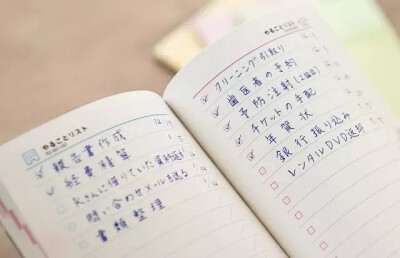 やることリスト
報告書作成
経費精算
Kさんに借りていた資料返却
問い合わせメールを送る
書類整理
やることリスト
クリーニング引取り
歯医者の予約
予防注射(2回目)
チケットの手配
年賀状
銀行振り込み
レンタルDVD返却